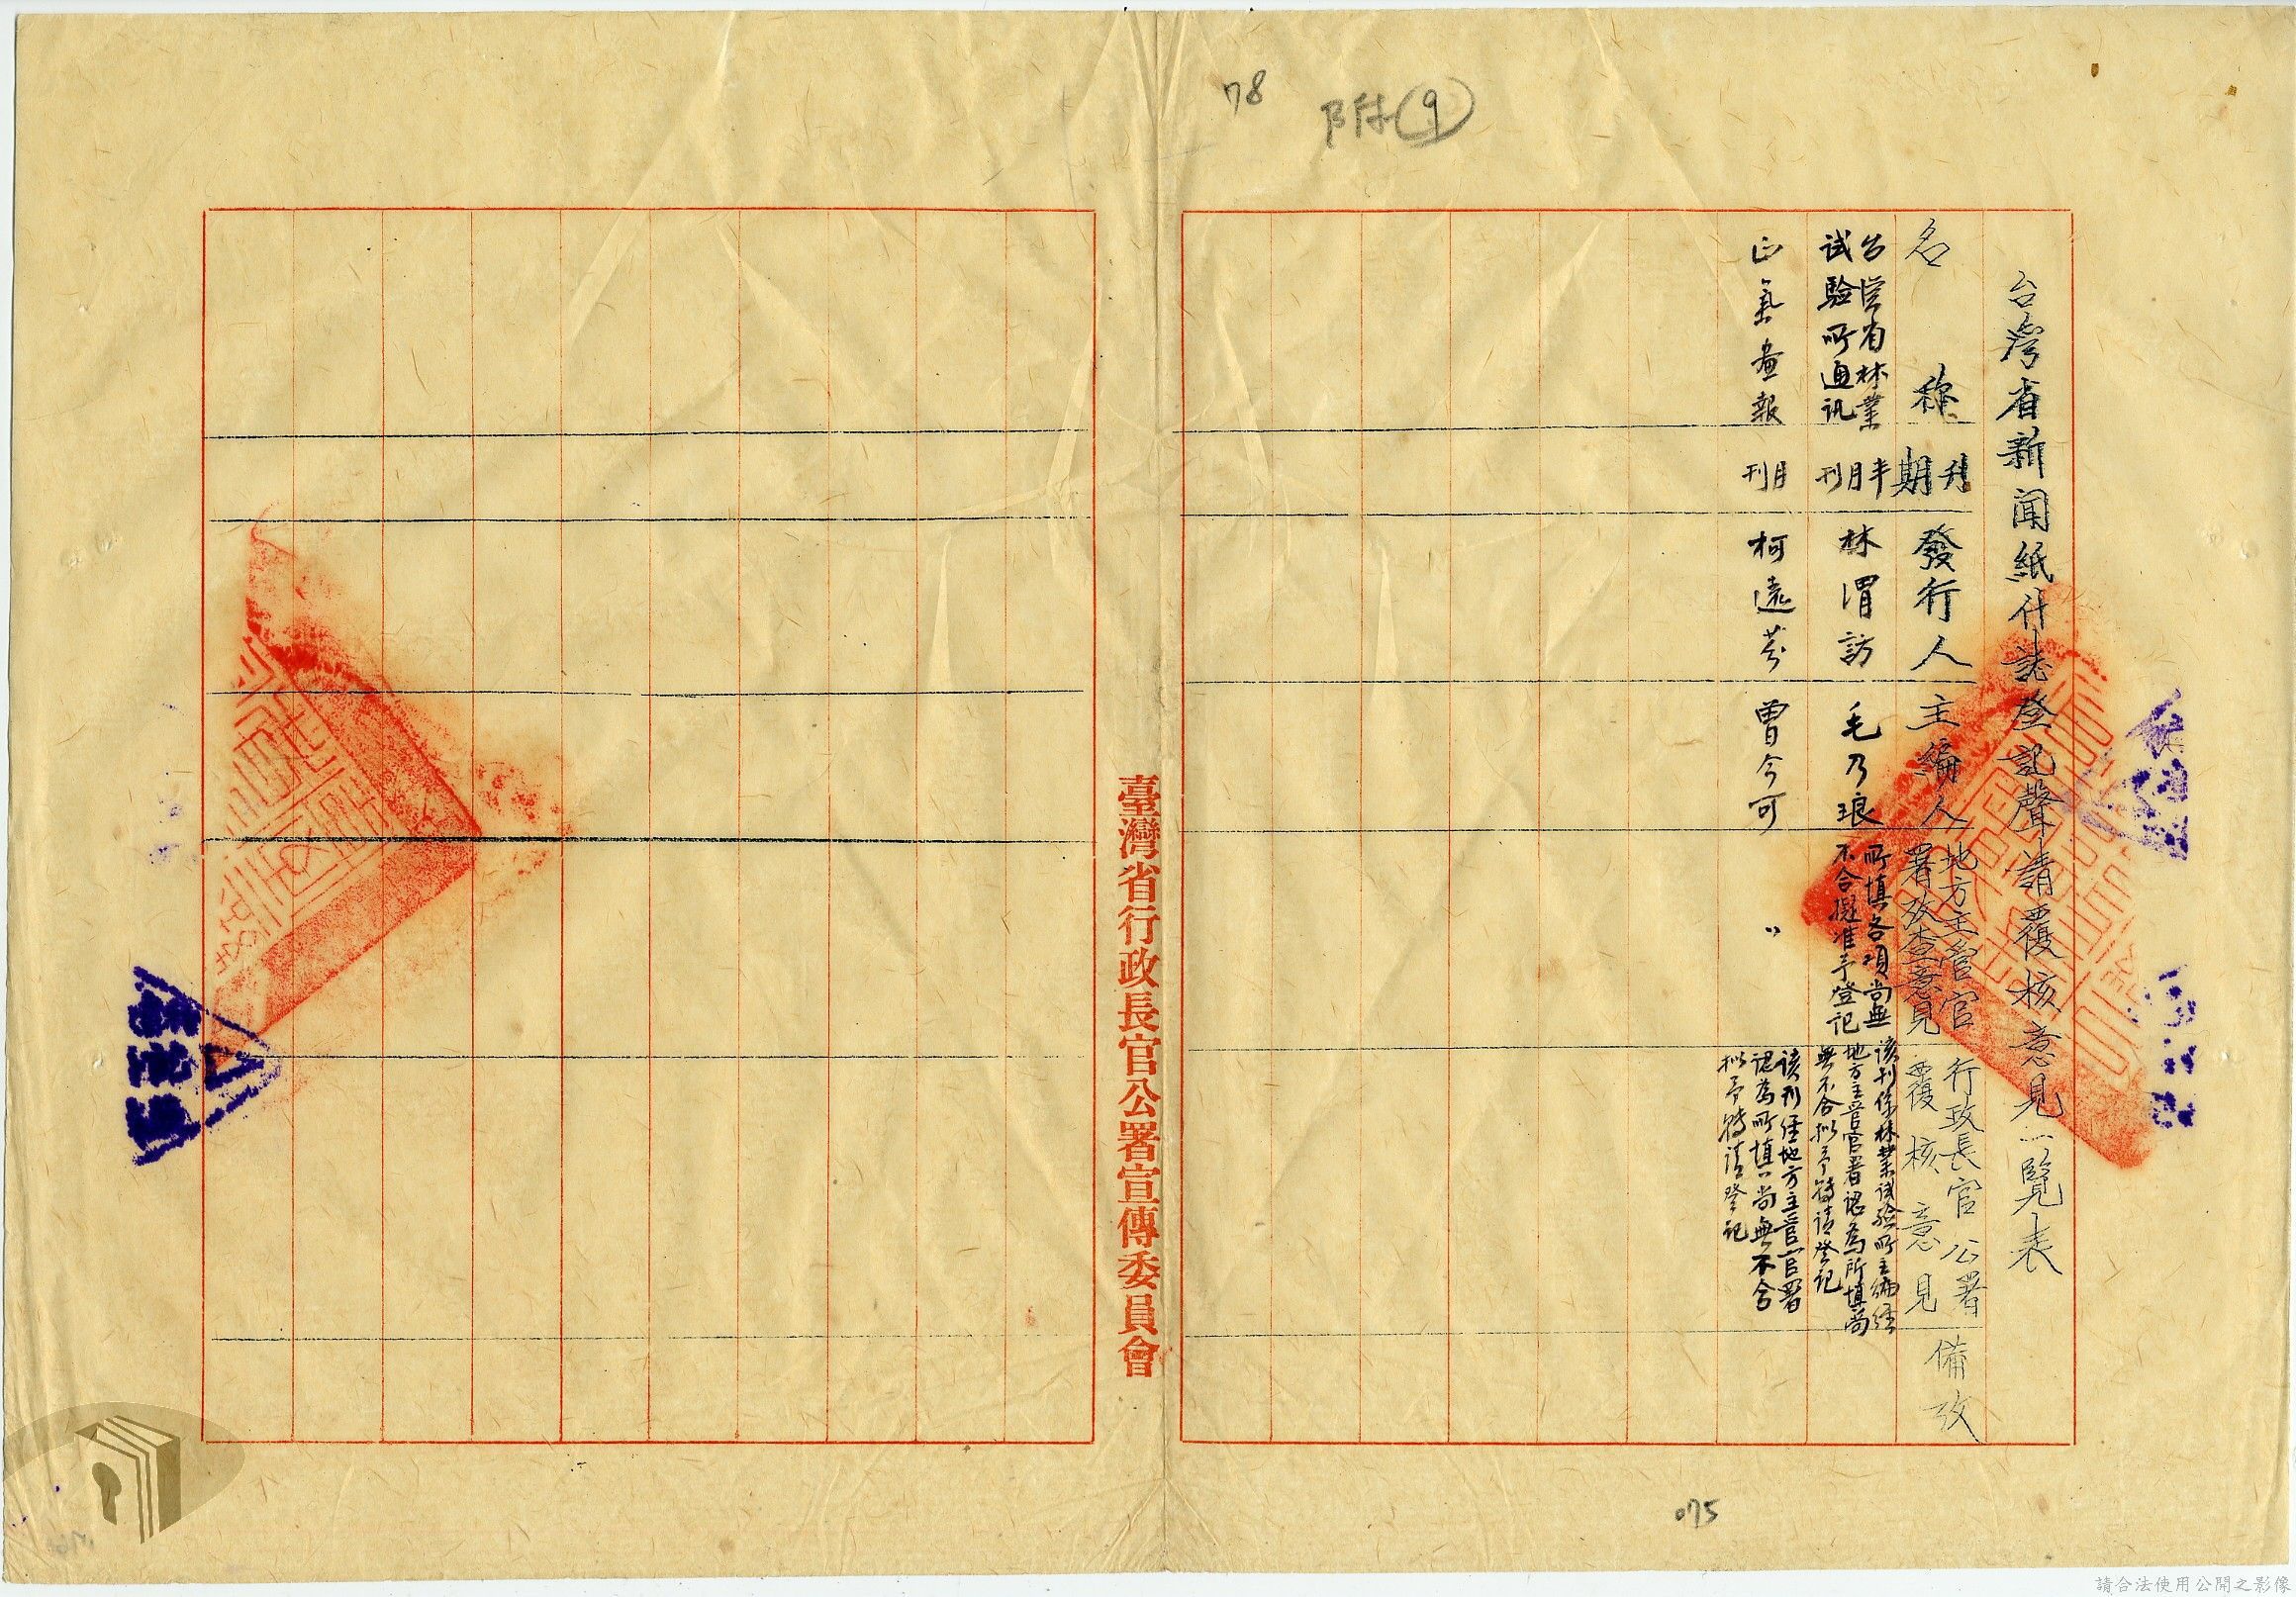 78
附⑨
台灣省新闻紙什誌登記聲請覆核意見一覽表
名称
刊期
發行人
主編人
地方主管官
署攷查意見
行政長官公署
覆核意見
備攷
台湾省林業
试驗所通讯
半月刊
林渭訪
毛乃琅
所填各項尚無
不合擬准予登记
该刊係林業试验所主编经
地方主管官署認為所填尚
無不合拟予转请登记
正氣畫報
月刊
柯遠芬
曾今可
〃
该刊经地方主管官署
認為所填尚無不合
拟予转请登记
臺灣省行政長官公署宣傳委員會
075
請合法使用公開之影像